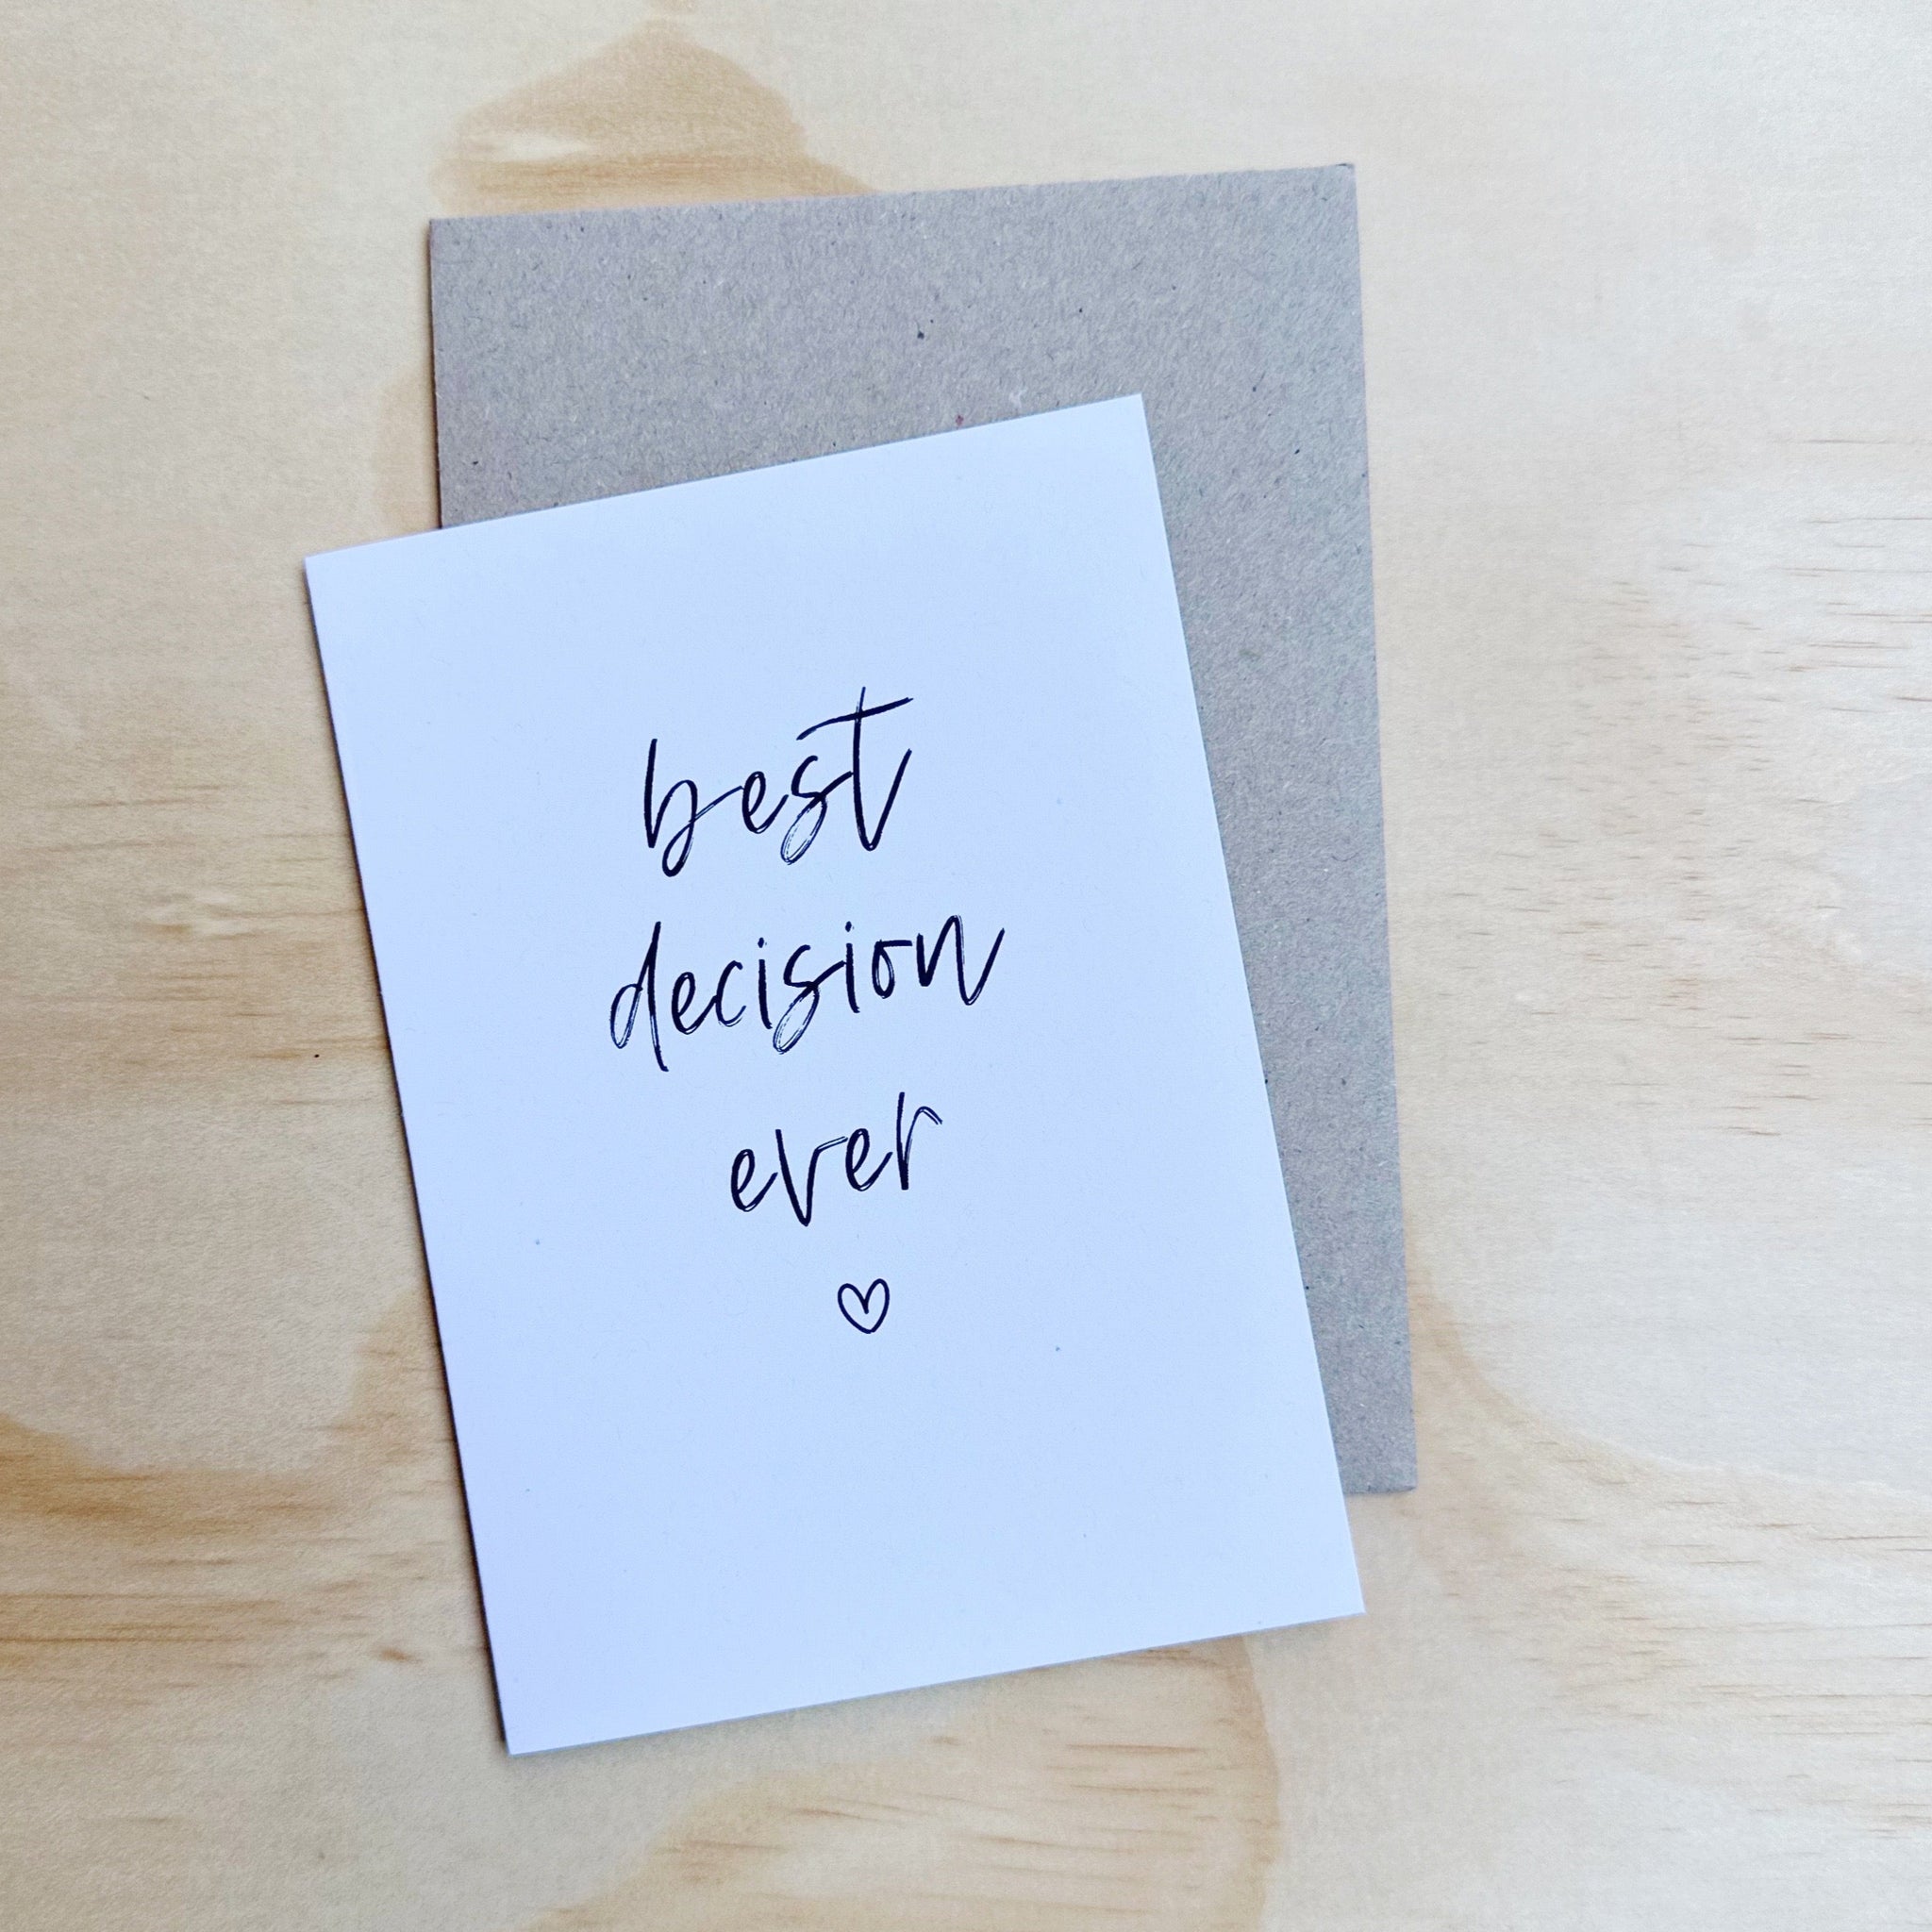 best
decision
ever